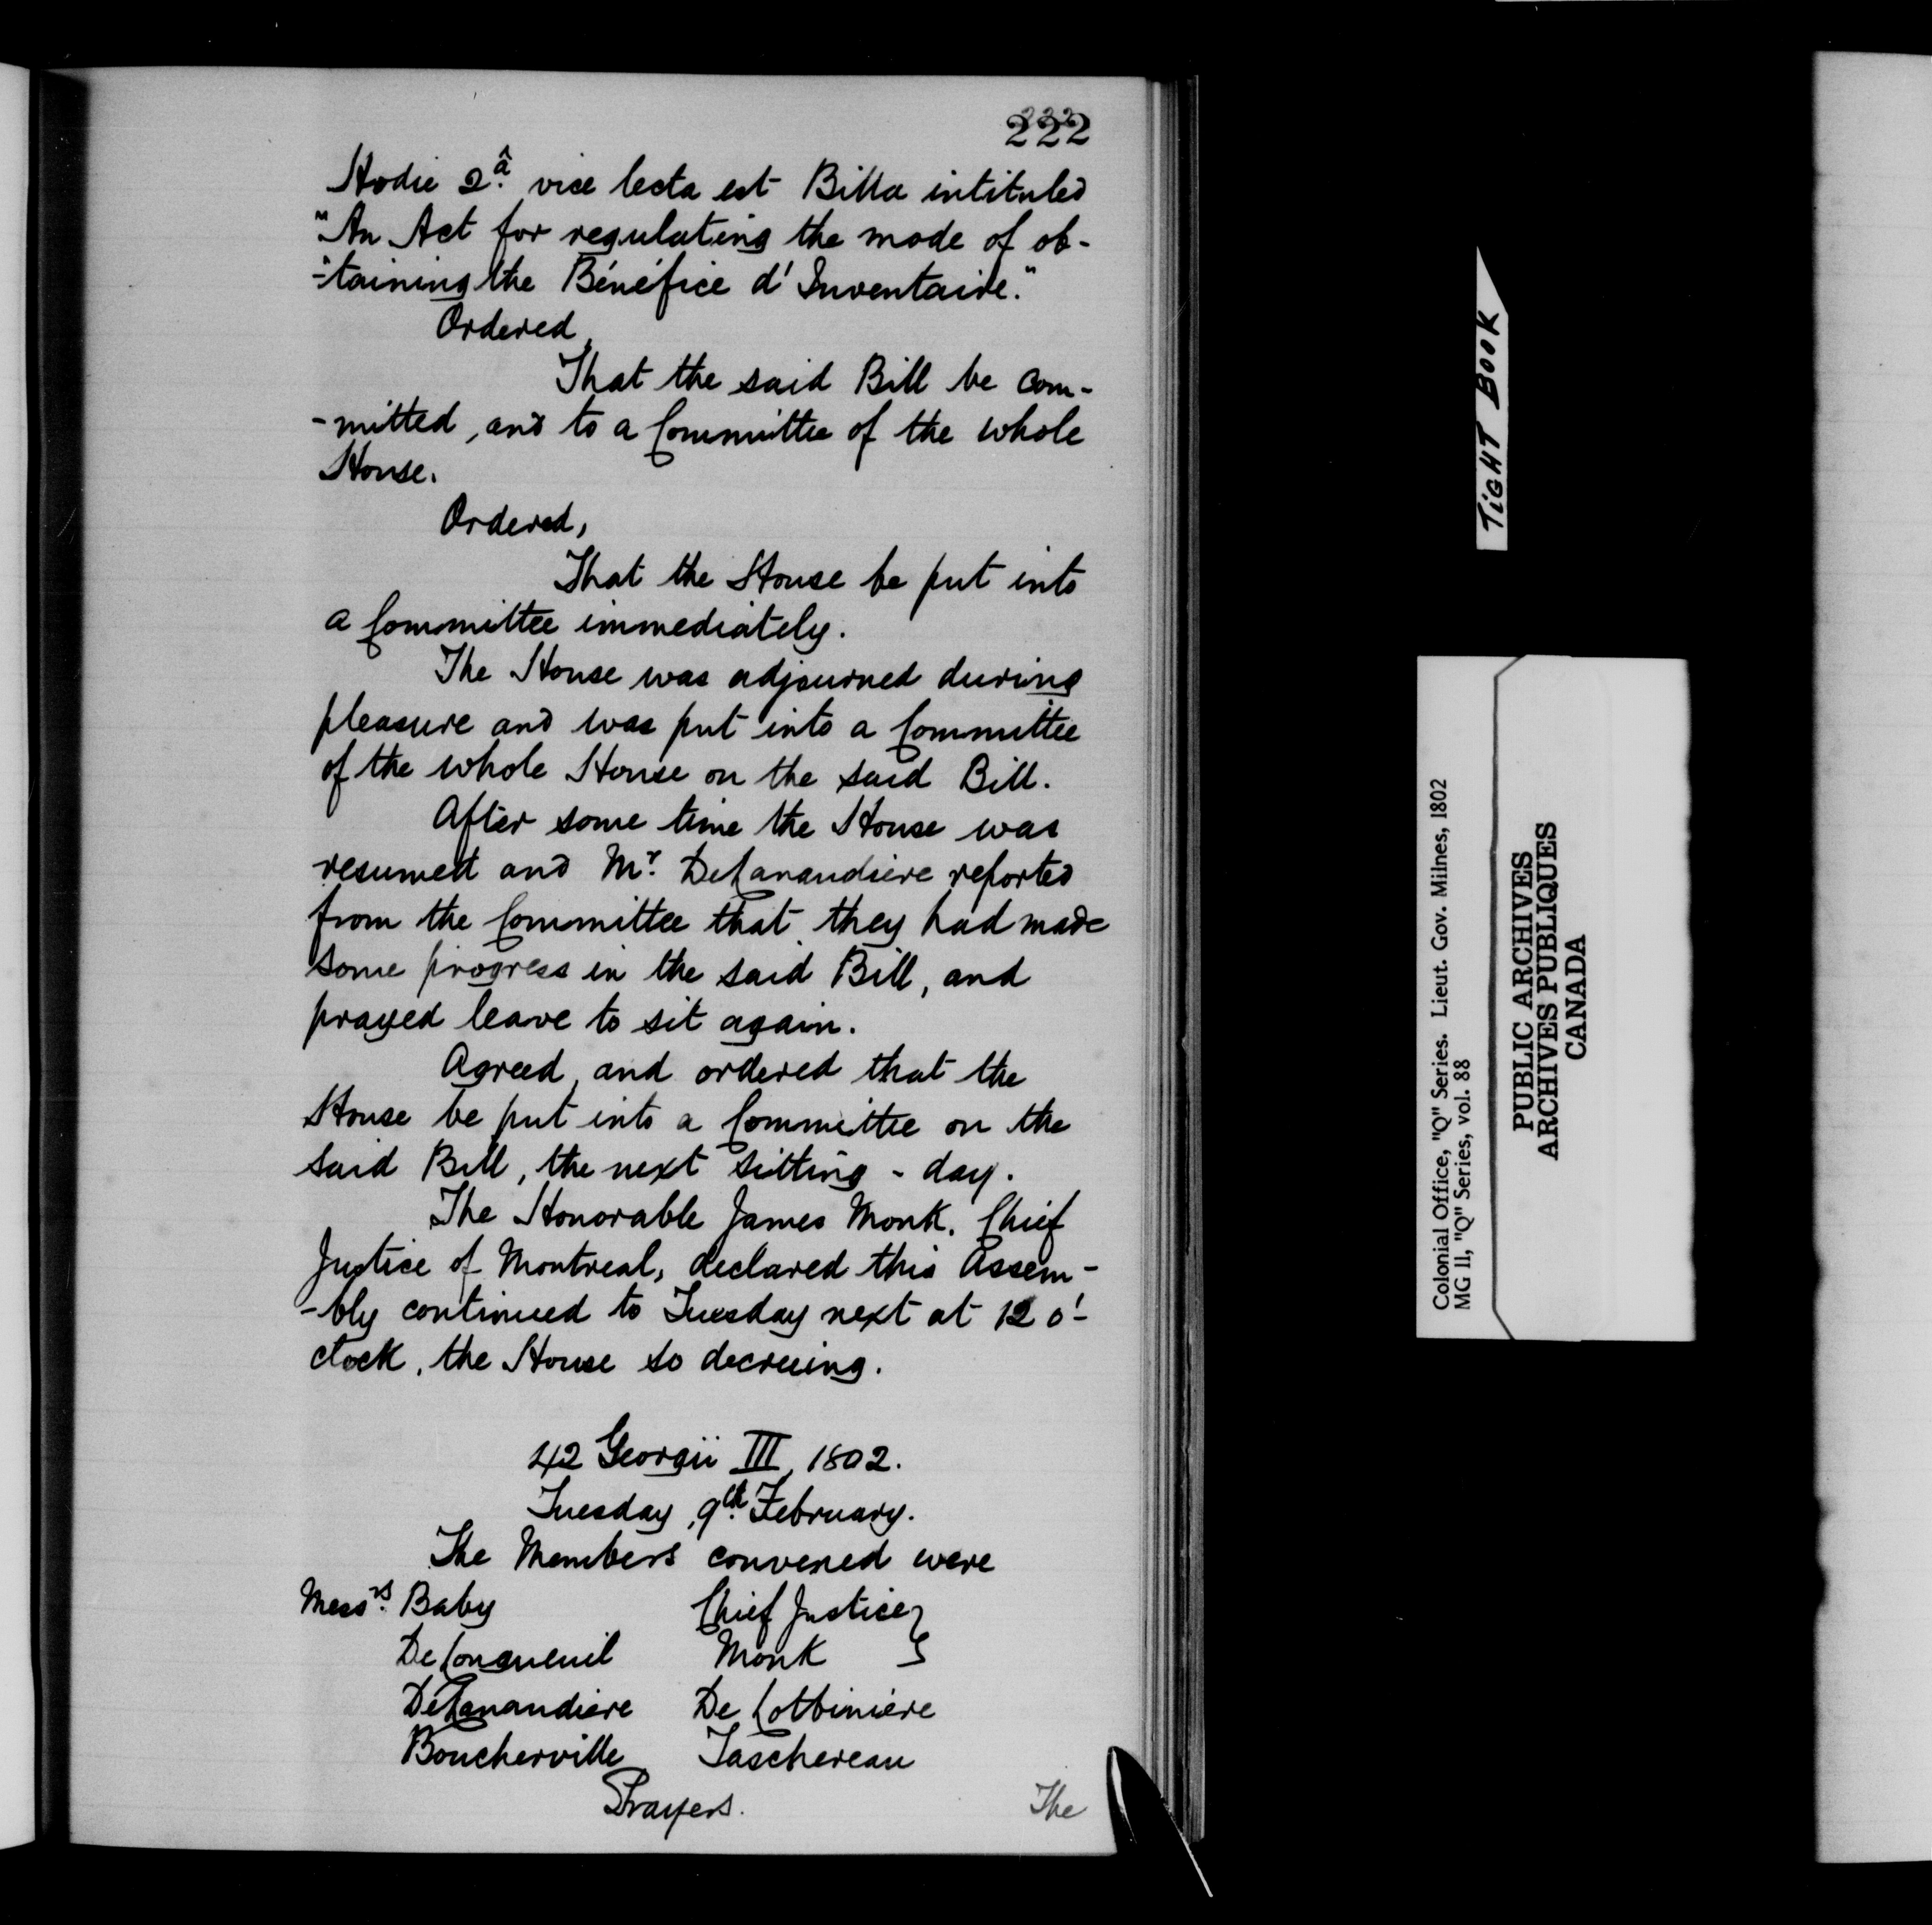 222
Hodie 2.â vice lecta est Billa intituled
"An Act for regulating the mode of ob-
"-taining the Bénéfice d'Inventaire."
Ordered,
That the said Bill be com-
-mitted, and to a Committee of the whole
House.
Ordered,
That the House be put into
a Committee immediately.
The House was adjourned during
pleasure and was put into a Committee
of the whole House on the said Bill.
After some time the House was
resumed and Mr. DeLanaudiere reported
from the Committee that they had made
some progress in the said Bill, and
prayed leave to sit again.
Agreed, and ordered that the
House be put into a Committee on the
said Bill, the next sitting - day.
The Honorable James Monk, Chief
Justice of Montreal, declared this Assem-
-bly continued to Tuesday next at 12 o'-
clock, the House so decreeing.
42 Georgii III, 1802.
Tuesday, 9th. February.
The Members convened were
Messrs. Baby Chief Justice }
De Longueuil Monk }
DeLanaudiere De Lotbiniere
Boucherville Taschereau
Prayers.
The
TIGHT BOOK
Colonial Office, "Q" Series. Lieut. Gov. Milnes, 1802
MG 11, "Q" Series, vol. 88
PUBLIC ARCHIVES
ARCHIVES PUBLIQUES
CANADA